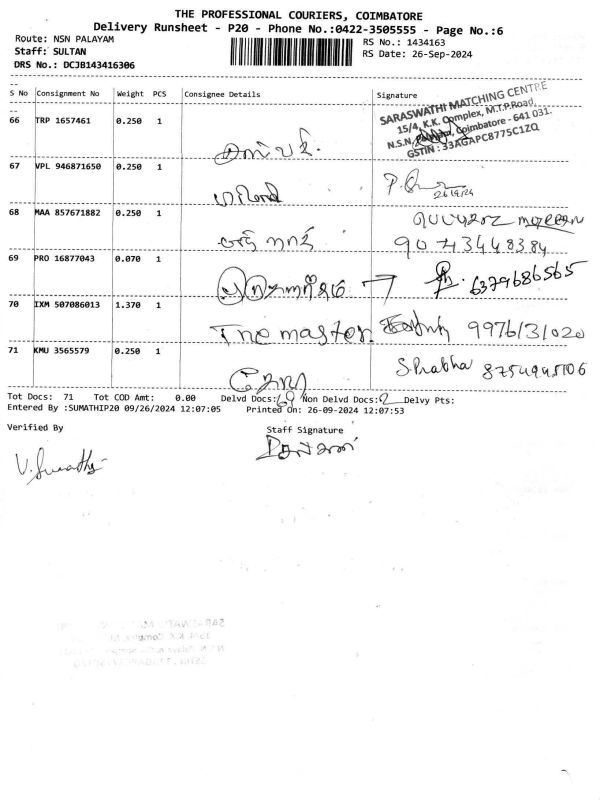 THE PROFESSIONAL COURIERS, COIMBATORE
Delivery Runsheet - P20 - Phone No.:0422-3505555 - Page No.:6
Route: NSN PALAYAM
RS No.: 1434163
Staff: SULTAN
RS Date: 26-Sep-2024
DRS No.: DCJB143416306
S No Consignment No Weight PCS Consignee Details Signature
SARASWATHI MATCHING CENTRE
15/4, K.K. Complex, M.T.P.Road,
N.S.N. Coimbatore - 641 031.
GSTIN : 33AGAPC8775C1ZQ
66 TRP 1657461 0.250 1
67 VPL 946871650 0.250 1
68 MAA 857671882 0.250 1
9073448384
69 PRO 16877043 0.070 1
6379686565
70 IXM 507086013 1.370 1
The master 9976131020
71 KMU 3565579 0.250 1
S.Prabha 8754945106
Tot Docs: 71 Tot COD Amt: 0.00 Delvd Docs: 69 Non Delvd Docs: 2 Delvy Pts:
Entered By :SUMATHIP20 09/26/2024 12:07:05 Printed On: 26-09-2024 12:07:53
Verified By
Staff Signature
V.Sumathi